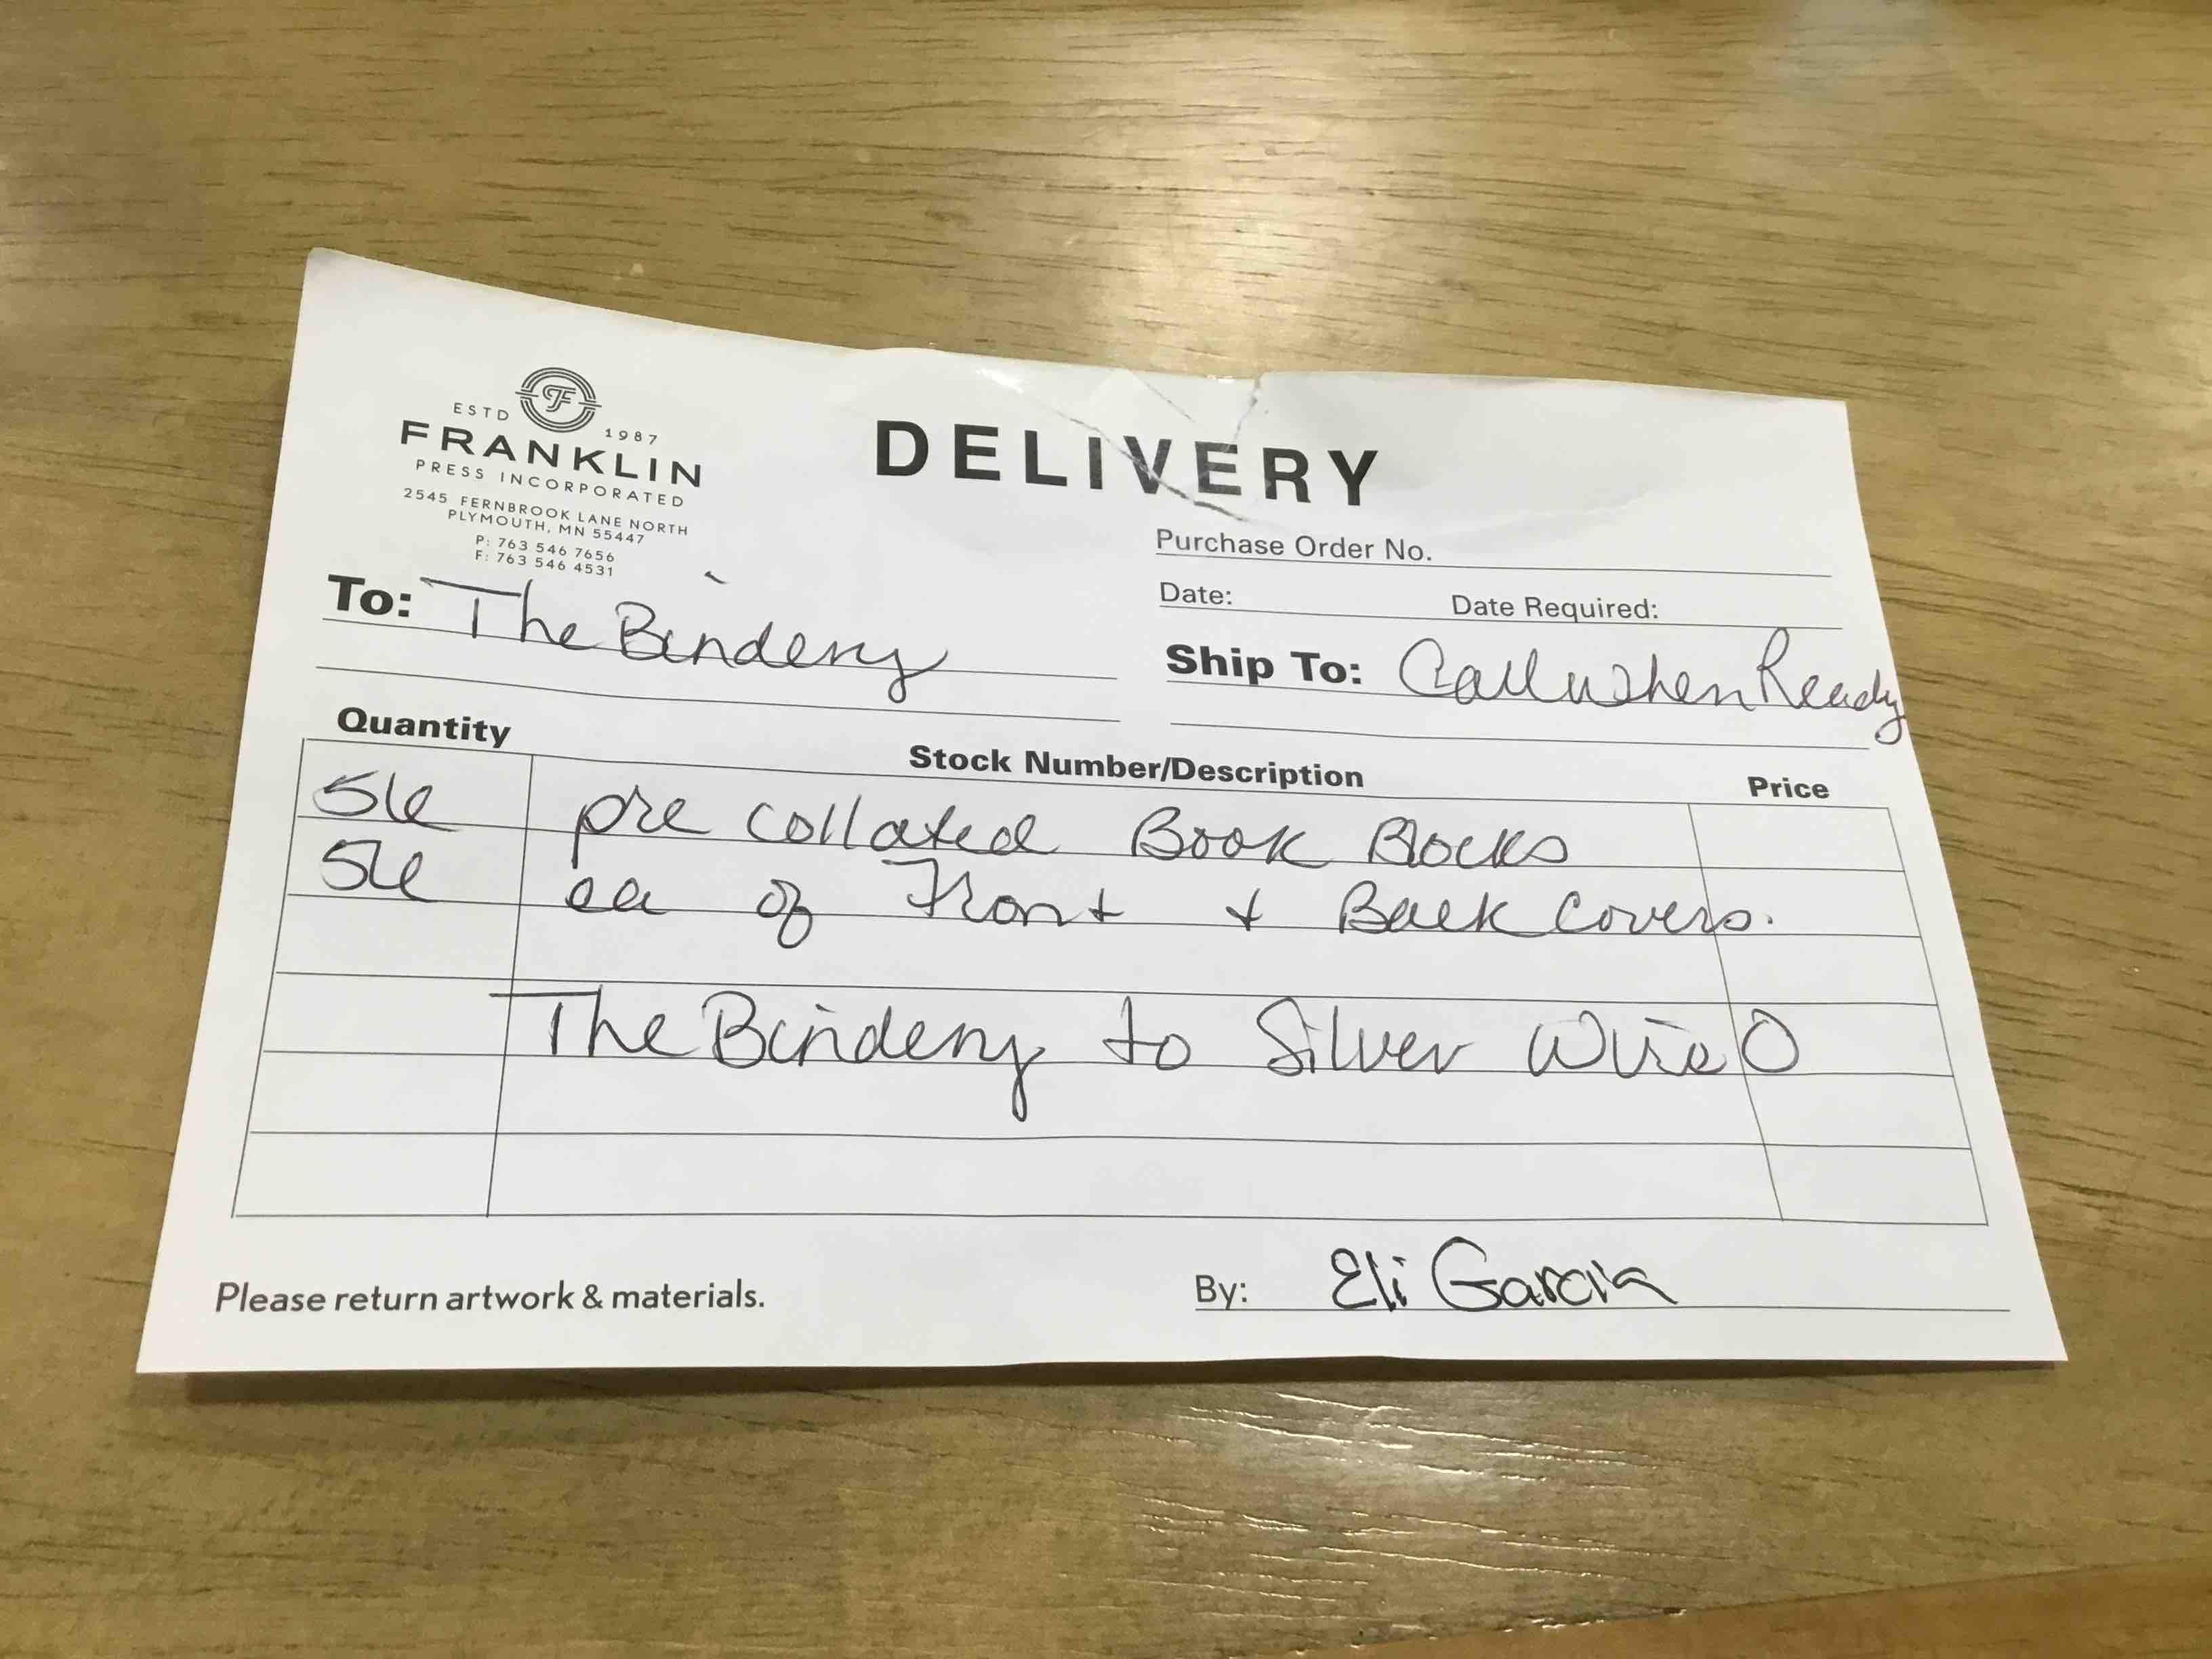 ESTD 1987
FRANKLIN
PRESS INCORPORATED
2545 FERNBROOK LANE NORTH
PLYMOUTH, MN 55447
P: 763 546 7656
F: 763 546 4531
DELIVERY
Purchase Order No.
Date: Date Required:
To: The Bindery
Ship To: Call when Ready
Quantity Stock Number/Description Price
pre collated Book Blocks
ea of Front + Back Covers.
The Bindery to Silver Wire O
Please return artwork & materials.
By: Eli Garcia